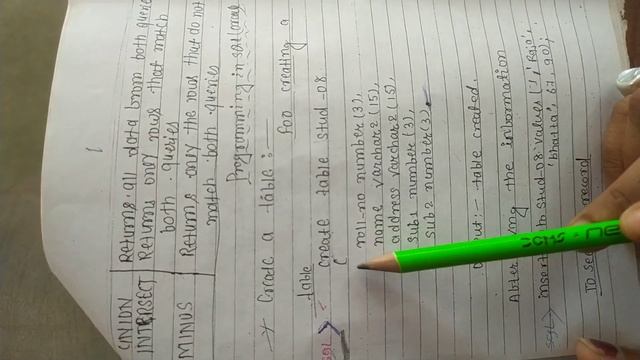 UNION Returns all data from both queries
INTERSECT Returns only rows that match
both queries
MINUS Returns only the rows that do not
match both queries
Programming in sql
* Create a table :-
for creating a
table
SQL> create table stud-08
(
roll-no number (3),
name varchar2 (15),
address varchar2 (15),
sub1 number (3),
sub2 number (3),
:- table created.
the information
SQL> insert stud-08 values (1, 'Raja',
'bhatta', 67, 90);
To record